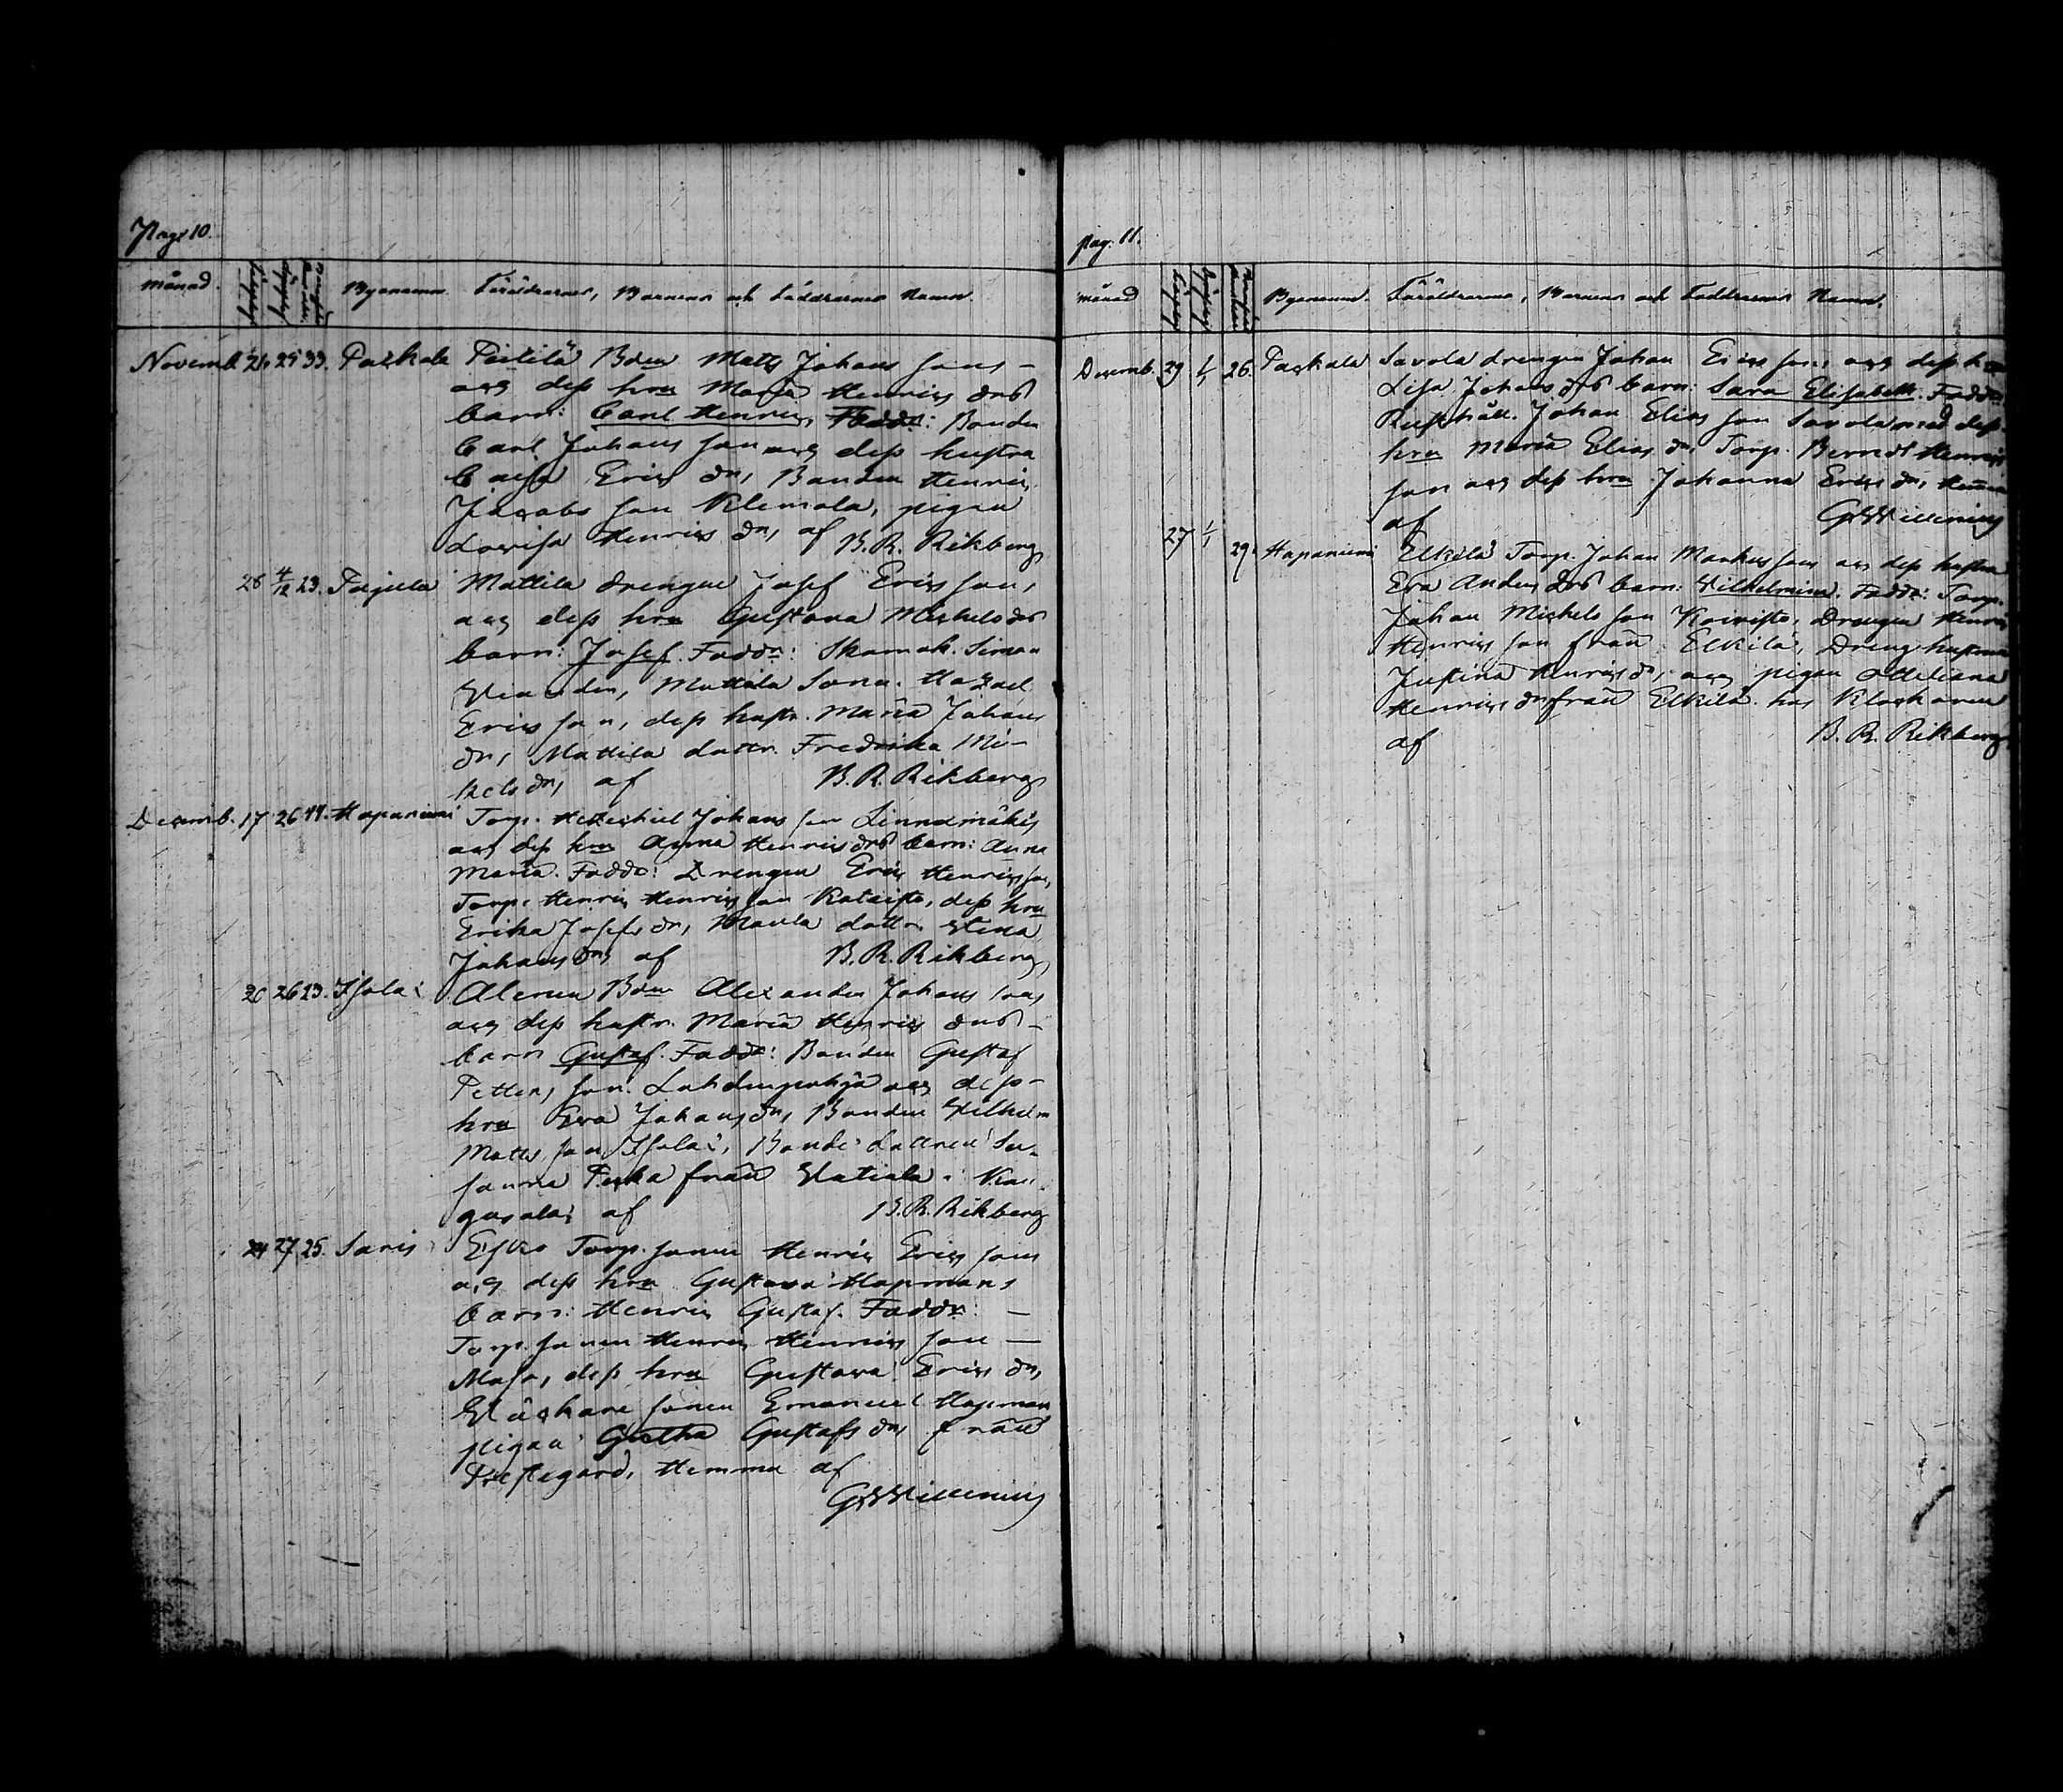 Pag. 10.
Månad. Födelsedag Döpelsedag Byanamn. Föräldrarnes, Barnens och Faddrarnes Namn.
Novemb. 21. 25 33. Paskala Peitilä Bden Matts Johans sons
och dess hru Maria Henrics drs
barn: Carl Henric. Faddr: Bonden
Carl Johans son och dess hustru
Caisa Erics dr, Bonden Henric
Jacobs son Klemola, pigan
Lovisa Henrics dr, af B. R. Rikberg
28 4/12 23. Pajula Mattila drengen Josef Erics son,
och dess hru Gustava Michels dr
barn: Josef. Faddr: Skomak. Simon
Mattila Sonen
Erics son, dess hustr. Maria Johans
dr, Mattila dottr. Fredrika Mi-
kels dr, af B. R. Rikberg
Decemb. 17 26 44. Hapaniemi Torp. Hezechiel Johans son Linnamäkis
och dess hru Anna Henrics drs barn: Anna
Maria. Faddr: Drengen Eric Henrics son,
Torp. Henric Henrics son Kataisto, dess hru
Erika Josefs dr, Maula dottr. Stina
Johans dr af B. R. Rikberg
20 26 23. Isola Alanen Bden Alexander Johans sons
och dess hustr. Maria Henrics drs
barn Gustaf. Faddr: Bonden Gustaf
Petters son Lahdenpohja och dess
hru Eva Johans dr, Bonden Vilhelm
Matts son Isola, Bonde dottren Su-
sanna Pekka från Vatiala i Kan-
gasala; af B. R. Rikberg
24 27 25. Saris Esko Torp. sonen Henric Erics sons
och dess hru Gustava Hapmans
barn: Henric Gustaf. Faddr:
Torp. sonen Henric Henrics son
Maso, dess hru Gustava Erics dr,
sonen Emanuel Hapman
pigan Gustafs dr från
Prestegård, Hemma af
G. W. Willenius
pag. 11.
Månad Födelsedag Döpelsedag Byanamn. Föräldrarnes, Barnens och Faddrarnes Namn.
Decemb. 29 1/1 26. Paskala Savola drengen Johan Erics sons och dess hru
Lisa Johans drs barn: Sara Elisabeth. Faddr
Rusthåll. Johan Elias son Savola med dess
hru Maria Elias dr, Torp. Berndt Henrics
son och dess hru Johanna Erics dr, Hemma
af G. W. Willenius
27 1/1 29. Hapaniemi Elkilä Torp. Johan Markus sons och dess hustru
Eva Anders drs barn: Vilhelmina. Faddr: Torp.
Johan Michels son Koivisto, Drengen Henric
Henrics son från Elkilä, Dreng hustrun
Justina Henrics dr, och pigan Adeliana
Henrics dr från Elkilä hos Klockaren
af B. R. Rikberg